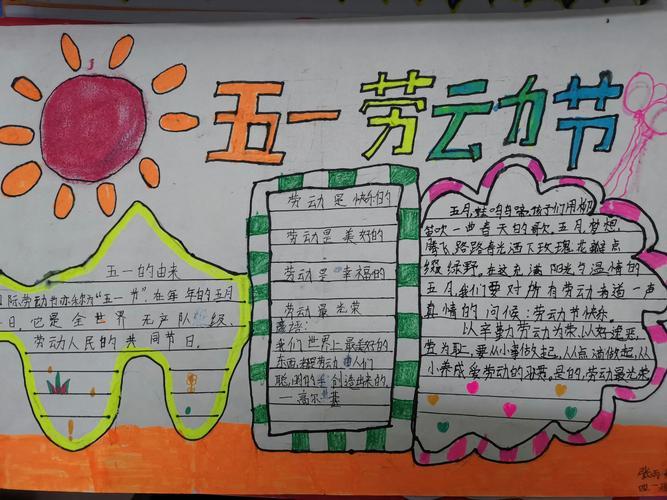 五一劳动节
五一的由来
际劳动节亦称为"五一节",在每年的五月
日。它是全世界无产阶级、
劳动人民的共同节日。
劳动是快乐的
劳动是美好的
劳动是幸福的
劳动最光荣
我们世界上最美好的
东西,都是劳动由人们
聪明的手创造出来的。
—高尔基
五月,蛙鸣鸟啼,孩子们用柳
笛吹一曲春天的歌。五月,梦想
腾飞路路春光洒下玫瑰花瓣点
缀绿野。在这充满阳光与温情的
五月,我们要对所有劳动者道一声
真情的问候:劳动节快乐。
以辛勤劳动为荣,以好逸恶
劳为耻,要从小事做起,从点滴做起,从
小养成爱劳动的习惯。是的,劳动最光荣
四一